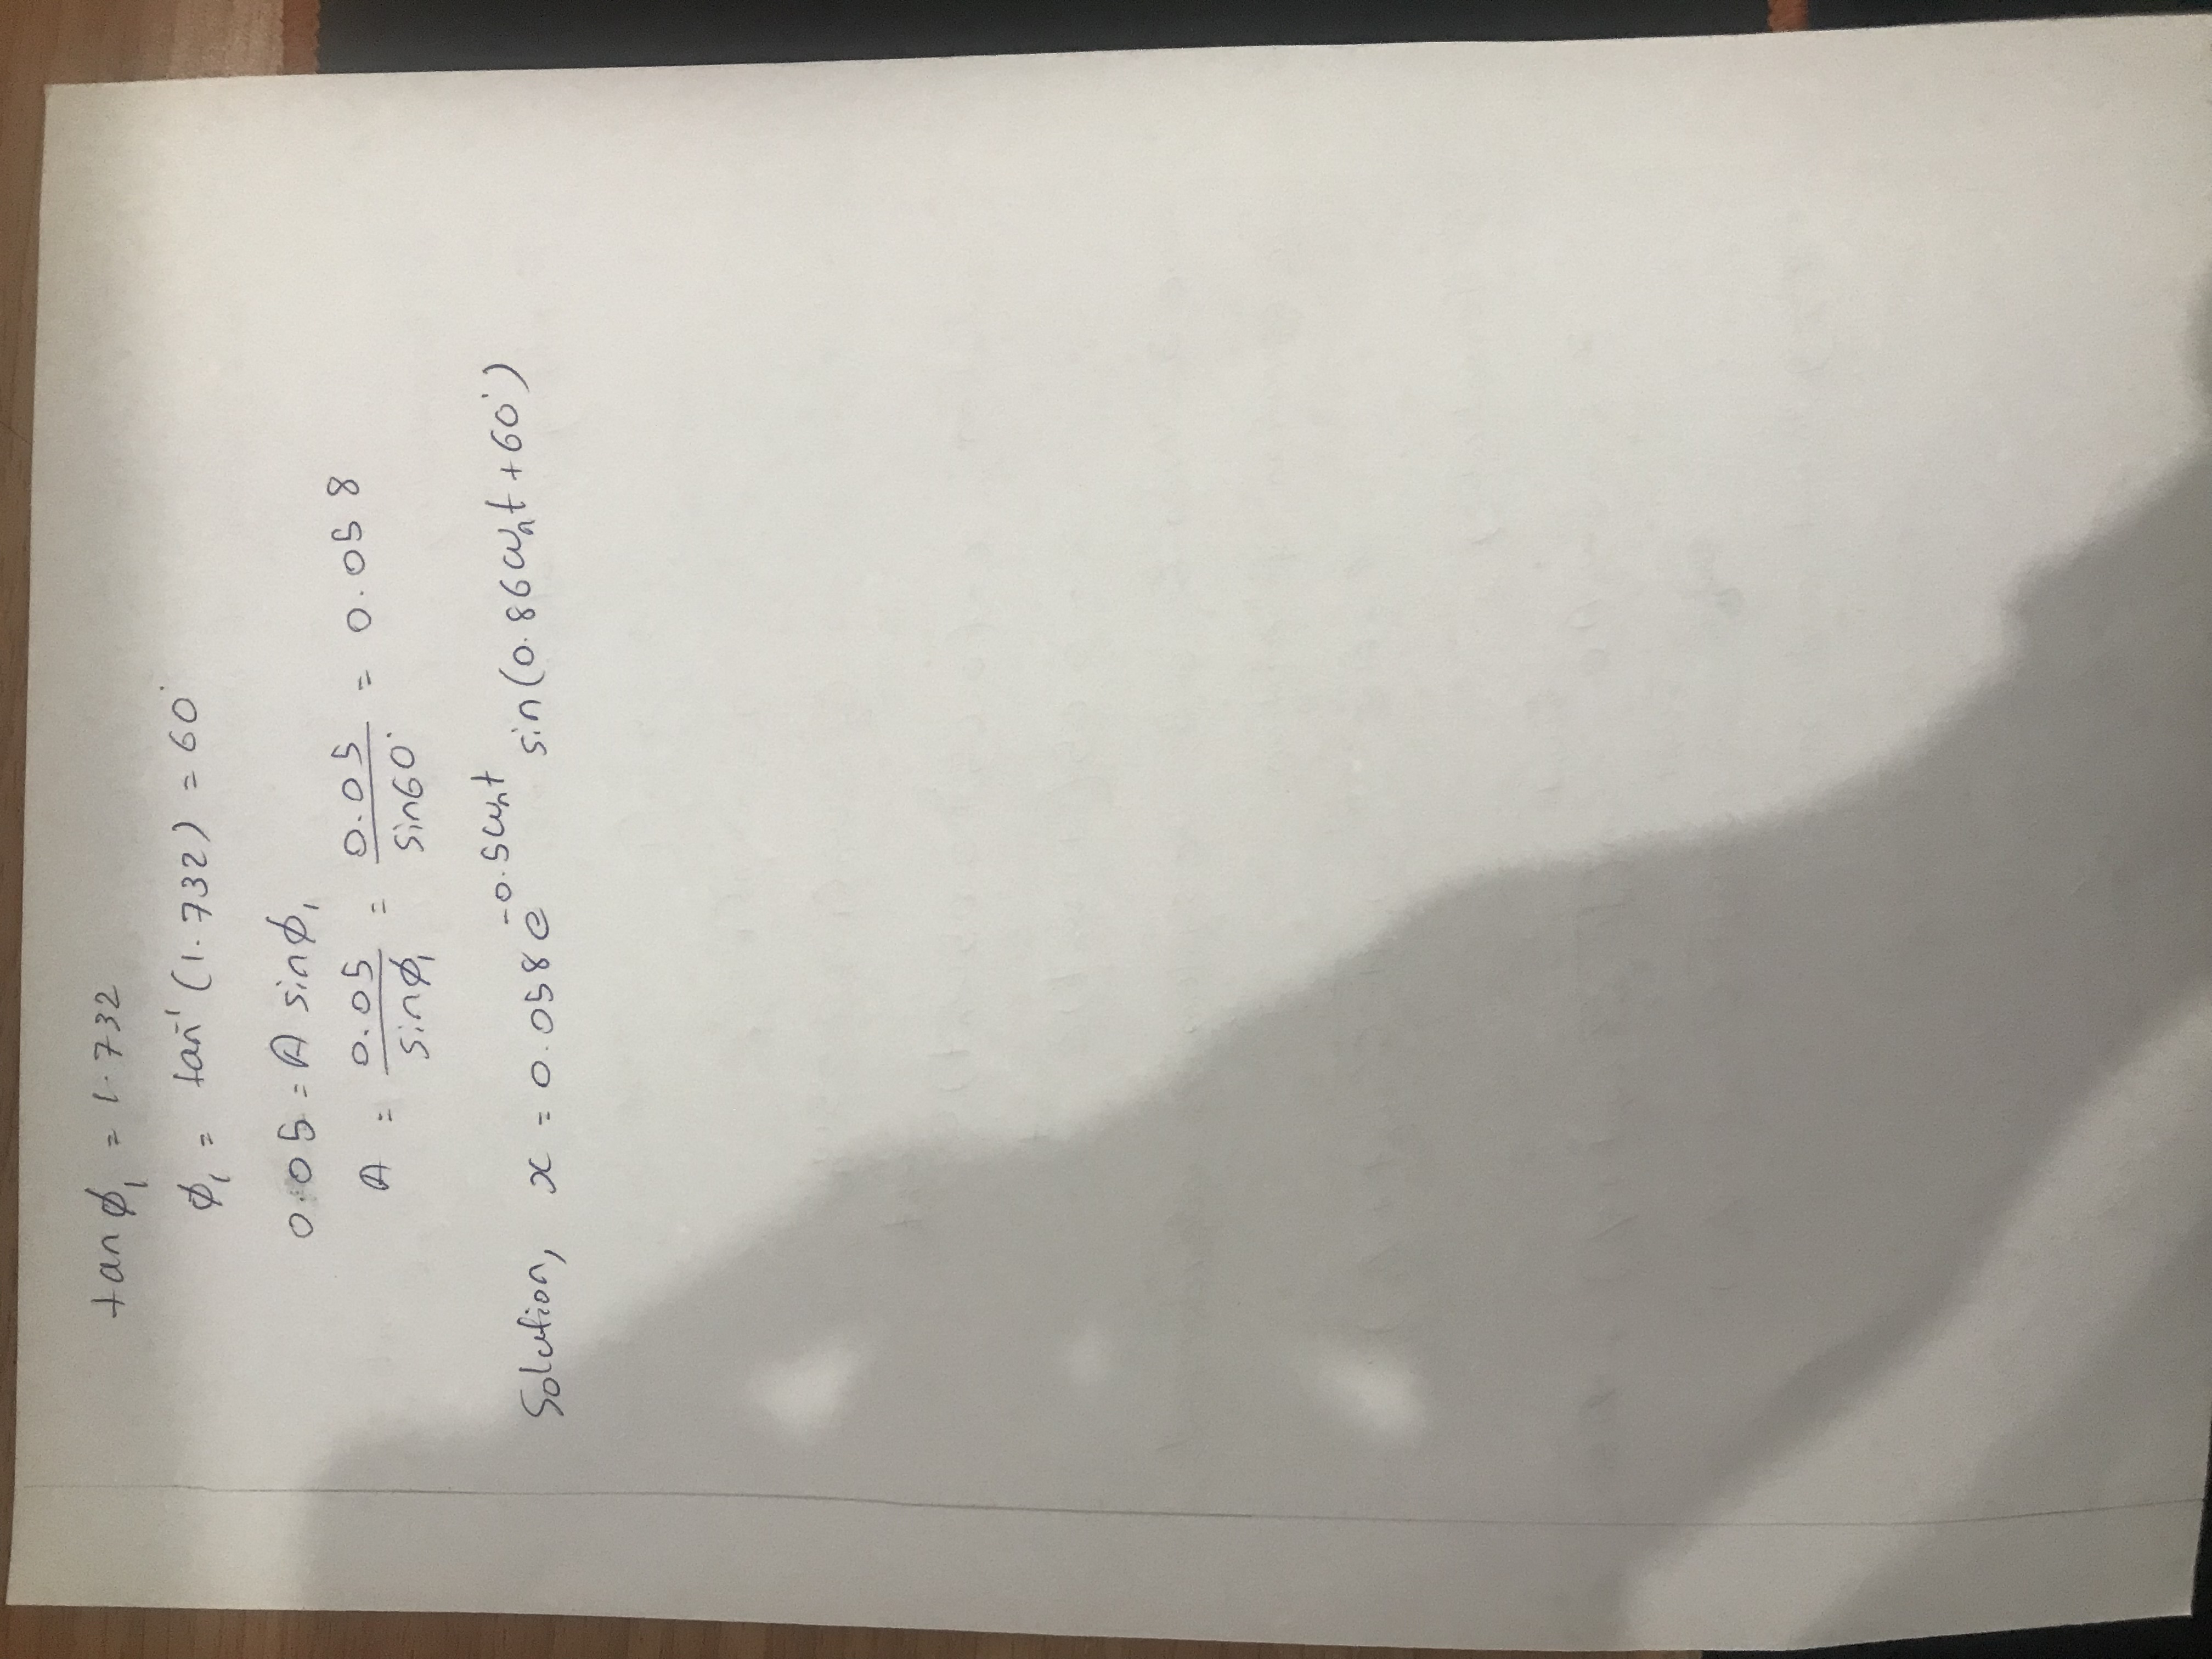 tan ϕ₁ = 1.732
ϕ₁ = tan⁻¹ (1.732) = 60°
0.05 = A sin ϕ₁
A = 0.05 / sin ϕ₁ = 0.05 / sin 60° = 0.058
Solution, x = 0.058 e^(-0.5ωₙt) sin (0.86 ωₙt + 60°)